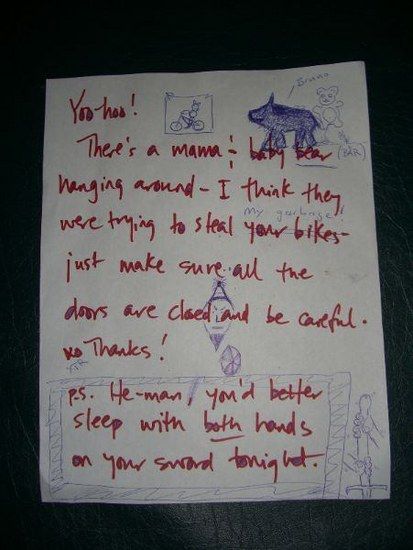 Yoo-hoo!
Bruno
There's a mama & baby bear
(BAR)
hanging around - I think they
my garbage!!
were trying to steal your bikes-
just make sure all the
doors are closed and be careful.
xo Thanks!
P.S. He-man, you'd better
sleep with both hands
on your sword tonight.